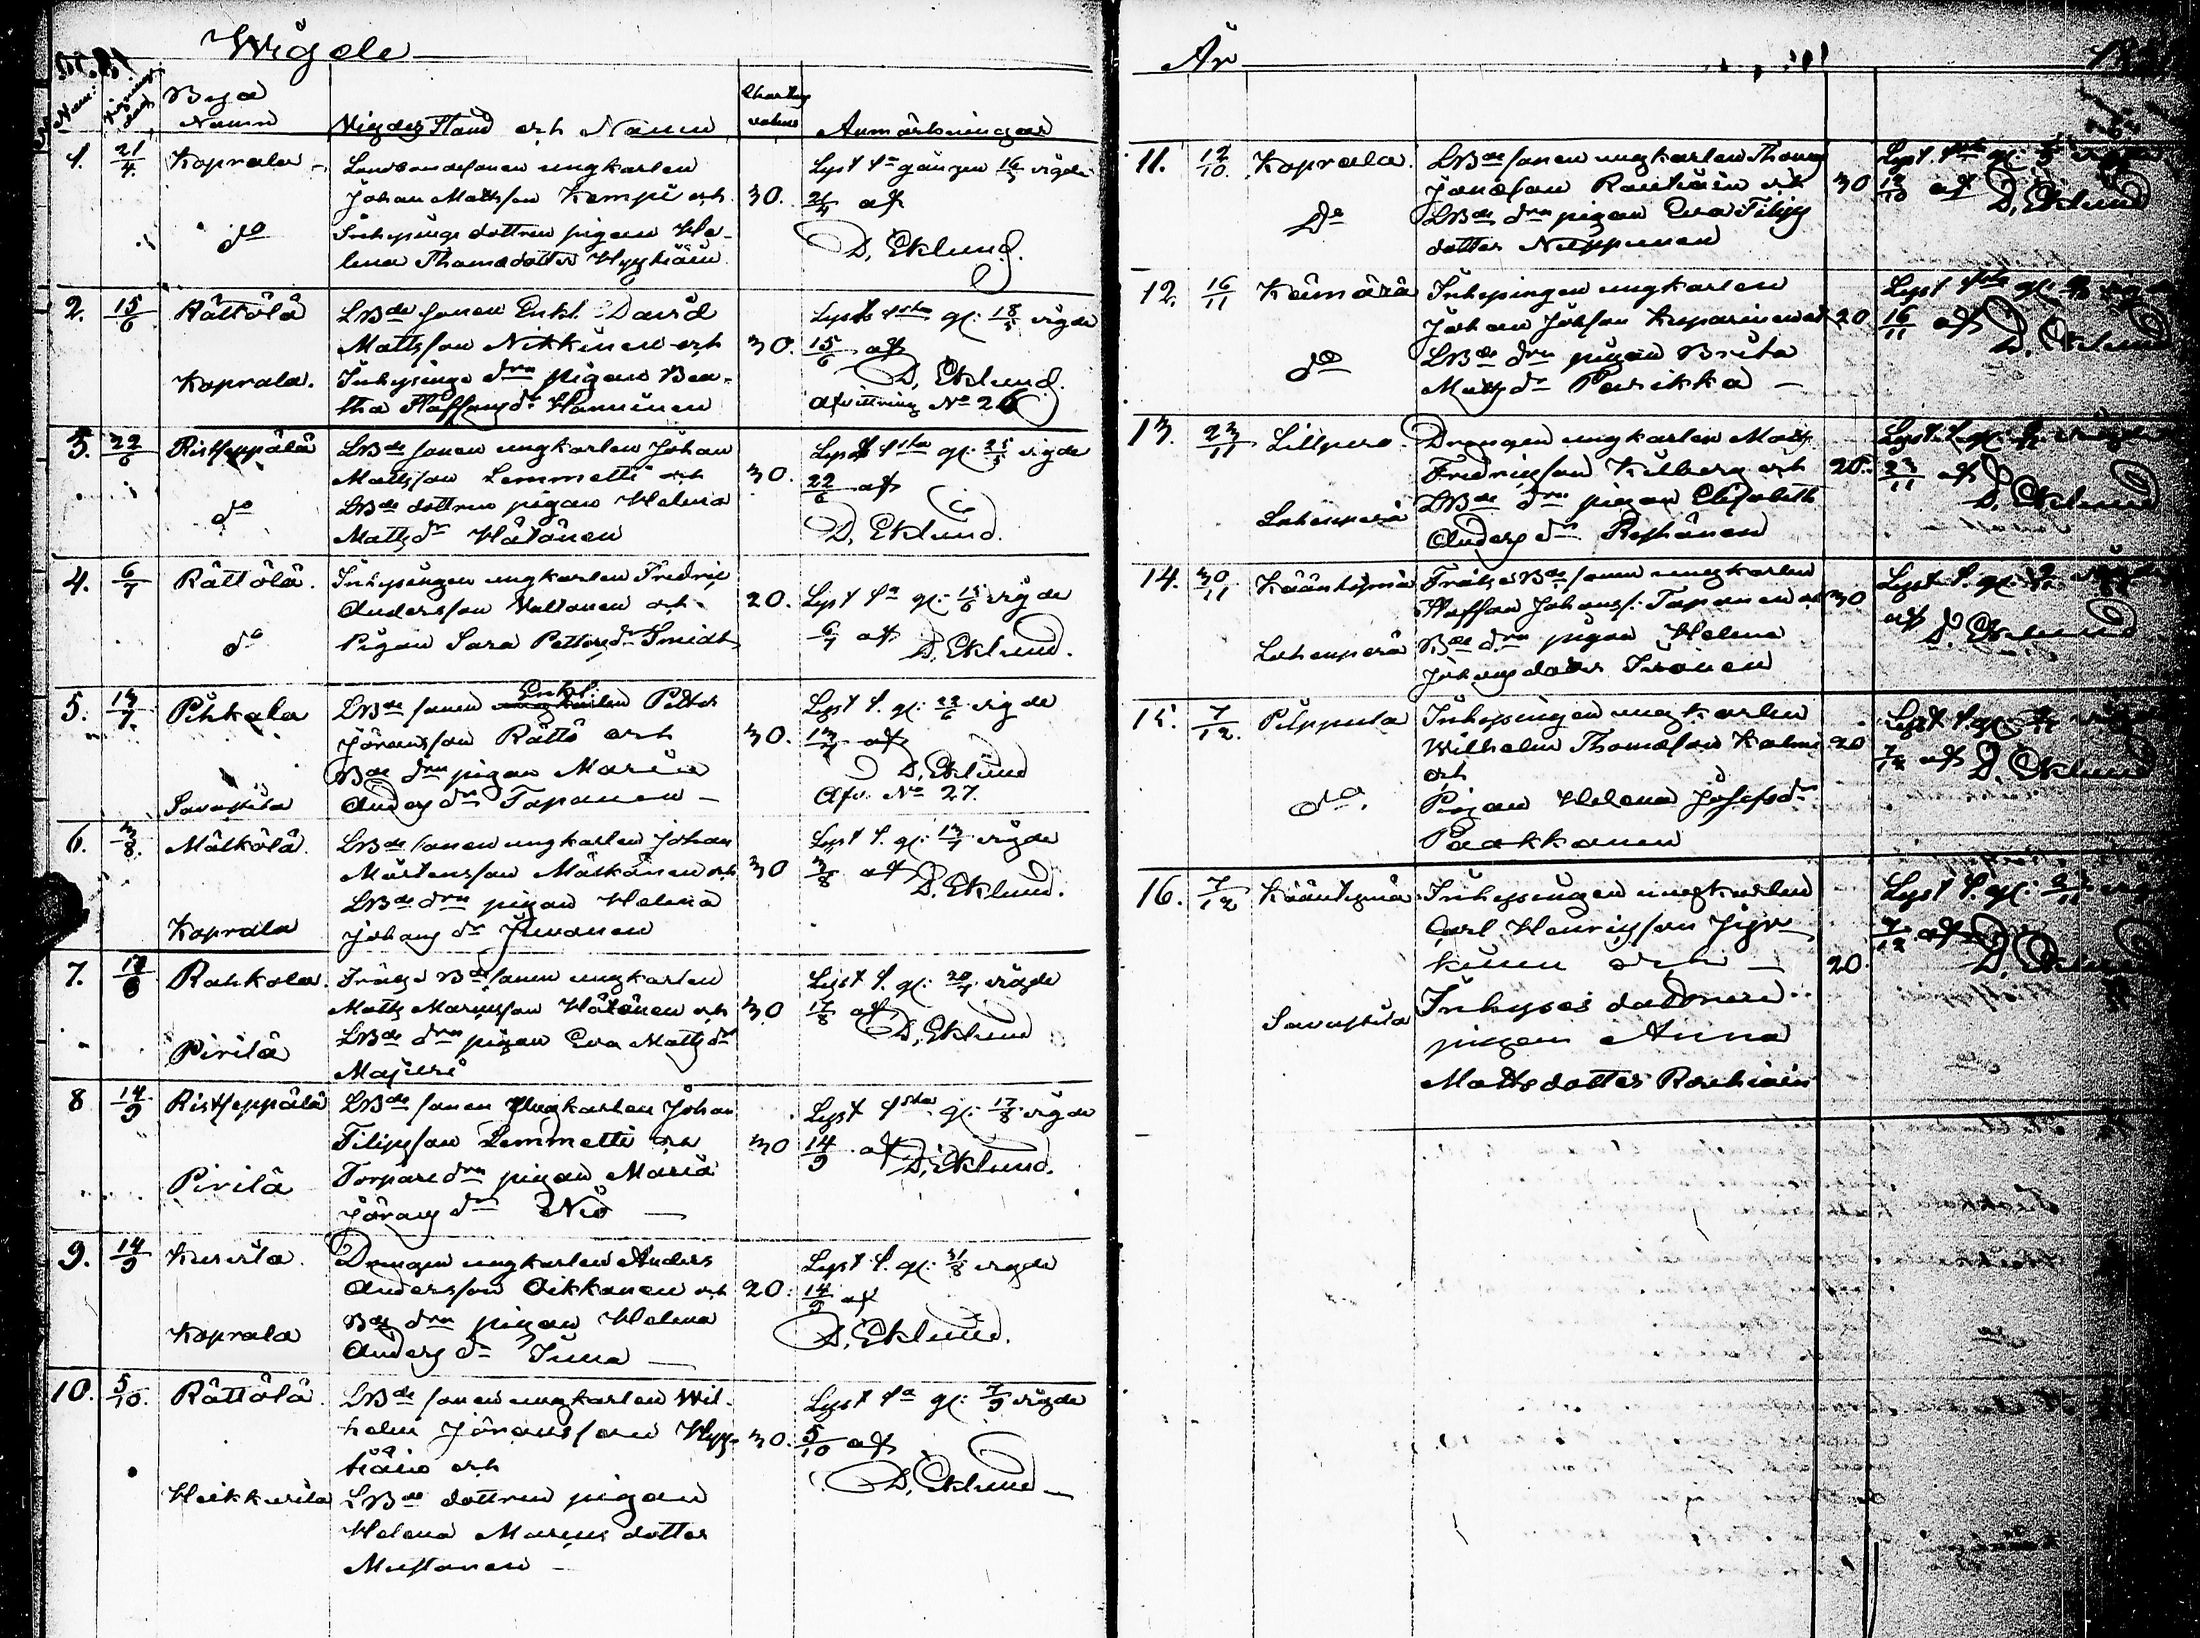 Wigde
År
Num:
Wignings dag
Bya Namn
Vigdes Stånd och Namn
Anmärkningar
1. 21/4 Koprala
Landbondesonen ungkarlen
Johan Mattsson Kemppi och
Inhysings dottren pigan He-
lena Thomædotter Hyytiäin
do
30.
Lyst 1a gången vigde
21/4 af
D. Eklund.
2. 15/6 Rättölä
LBde sonen Enkl. David
Mattsson Nikkinen och
Koprala. Inhysings dren pigan Bea-
tha Staffans dr Hanninen
30.
Lyste 1sta gg: 18/5 vigde
15/6 af
D. Eklund.
Afvittring No 26
3. 22/6 Ristseppälä
LBde sonen ungkarlen Johan
Mattsson Lemmetti och
do LBde dottren pigan Helena
Matts dr Hätönen
30.
Lyst 1sta gg: 25/5 vigde
22/6 af
D. Eklund.
4. 6/7 Rättölä.
Inhysingen ungkarlen Fredric
Andersson Valtonen och
do Pigan Sara Petters dr Smidt
20.
Lyst 1a gg: 15/6 vigde
6/7 af D. Eklund.
5. 13/7. Pihkala
LBde sonen Enkl: Petter
Jöransson Rättö och
Bde dren pigan Maria
Savastila Anders dr Tapanen
30.
Lyst 1. gg: 22/6 vigde
13/7 af
D. Eklund
Afv. No 27.
6. 3/8. Mälkölä.
LBde sonen ungkarlen Johan
Mårtensson Mälkönen och
LBde dren pigan Helena
Koprala Johans dr Juvonen
30
Lyst 1. gg: 13/7 vigde
3/8 af D. Eklund.
7. 17/8 Rahkola.
Frälse Bde sonen ungkarlen
Matts Marcusson Hätönen och
Pirilä LBde dren pigan Eva Matts dr
Majuri
30
Lyst 1. gg: 20/7 vigde
17/8 af
D. Eklund
8 14/9 Ristseppälä
LBde sonen Ungkarlen Johan
Filipsson Lemmetti och
Pirilä Torpare dren pigan Maria
Jörans dr Niö
30
Lyst 1sta gg: 17/8 vigde
14/9 af D. Eklund.
9. 14/9 Kuisila.
Drengen ungkarlen Anders
Andersson Oikkonen och
Koprala Bde dren pigan Helena
Anders dr
20.
Lyst 1. gg: 31/8 vigde
14/9 af
D. Eklund.
10. 5/10. Rättölä.
LBde sonen ungkarlen Wil-
helm Jöransson Hyy-
tiäin och
Heikkurila LBde dottren pigan
Helena Marcus dotter
Mustonen
30.
Lyst 1a gg: 7/9 vigde
5/10 af
D. Eklund
11. 12/10. Koprala.
LBde sonen ungkarlen Thomas
Jonasson Rouhiain och
Do LBde dren pigan Eva Filips
dotter Nupponen
30
Lyst gg: vigde
12/10 af D. Eklund
12. 16/11 Keimärä
Inhysingen ungkarlen
Johan Johsson Kuparinen och
do LBde dren pigan Brita
Matts dr Parikka
20.
Lyst gg: vigde
16/11 af D. Eklund
13. 23/11 Lillpero.
Drengen ungkarlen Matts
Fredricsson Kilberg och
Lahenperä LBde dren pigan Elisabeth
Anders dr
20.
Lyst 1. gg: vigde
23/11 af
D. Eklund
14. 30/11 Kääntymä
Frälse Bde sonen ungkarlen
Staffan Johanss: Tapanen och
Lahenperä Bde dren pigan Helena
Johans dotter Ironen
30
Lyst 1. gg: vigde
af D. Eklund
15. 7/12. Pilppula
Inhysingen ungkarlen
Wilhelm Thomæson Kolmi
och
do. Pigan Helena Josefs dr
Paakkonen
20
Lyst 1. gg: vigde
7/12 af D. Eklund
16. 7/12 Kääntymä
Inhysingen ungkarlen
Carl Henricsson
och
Savastila Inhyses dottren
pigan Anna
Matts dotter Rouhiain
20.
Lyst 1. gg:
7/12 af
D. Eklund